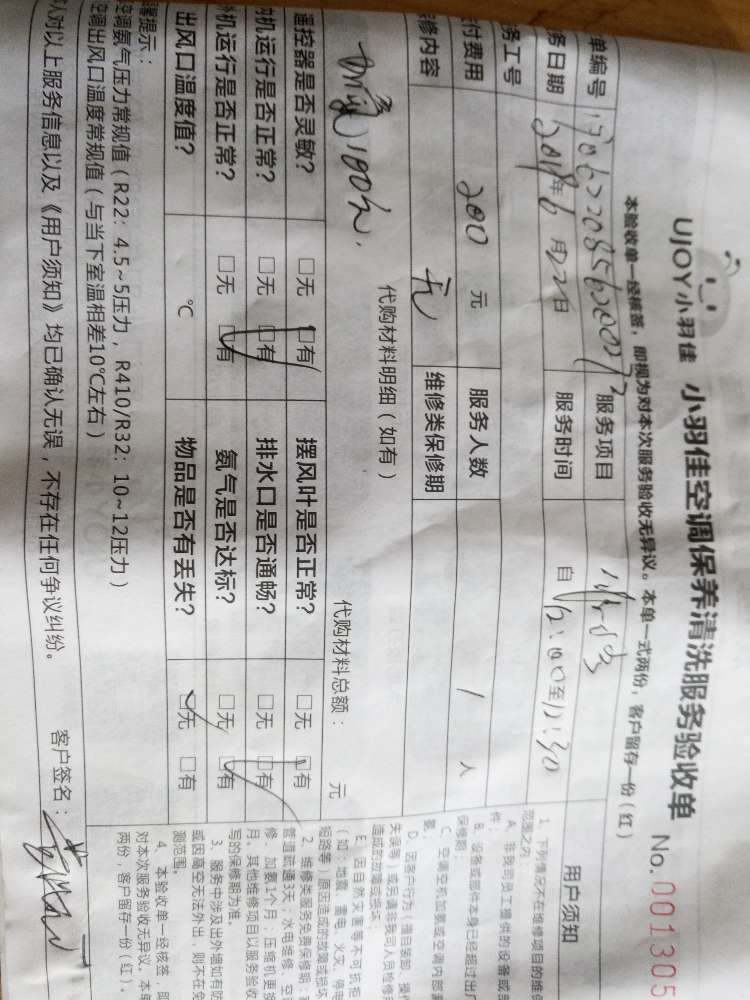 UJOY小羽佳 小羽佳空调保养清洗服务验收单 No. 001305
本验收单一经核签，即视为对本次服务验收无异议。本单一式两份，客户留存一份（红）
单编号 服务项目
务日期 年6月22日 服务时间 自12:00至12:30
务工号
付费用 200 元 服务人数 1 人
修内容 无 维修类保修期
代购材料明细（如有） 代购材料总额： 元
100元
遥控器是否灵敏？ □无 □有 摆风叶是否正常？ □无 □有
机运行是否正常？ □无 □有 排水口是否通畅？ □无 □有
机运行是否正常？ □无 □有 氨气是否达标？ □无 □有
出风口温度值？ ℃ 物品是否有丢失？ □无 □有
提示：
空调氨气压力常规值（R22：4.5~5压力，R410/R32：10~12压力）
空调出风口温度常规值（与当下室温相差10℃左右）
人对以上服务信息以及《用户须知》均已确认无误，不存在任何争议纠纷。 客户签名：
用户须知
1、下列情况不在维修项目的维保
范围之内：
A、非我司员工提供的设备或部
件；
B、设备或部件本身已经超过出厂
保修期；
C、空调空机加氨或空调内部漏
氨；
D、因客户行为（擅自装卸、操作
失误等）或另请非我司人员维修
造成的故障或损坏；
E、因自然灾害等不可抗拒
（如：地震、雷电、火灾、停电
短路等）原因造成的故障或损坏
2、维修类服务免费保修期：
管道疏通3天；水电维修、空
修、加氨1个月；压缩机更换
月、其他维修项目以服务验收
写的保修期为准。
3、服务中涉及出外墙如有防
或因高空无法外出，则不在免
测范围。
4、本验收单一经核签，即
对本次服务验收无异议。本单
两份，客户留存一份（红）。